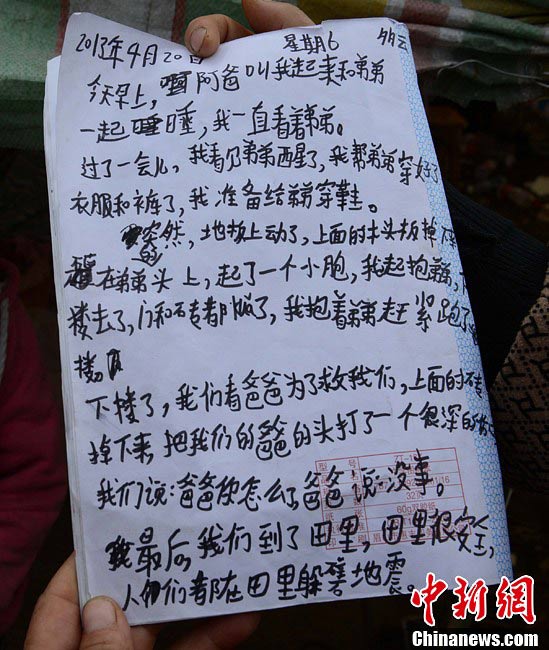 2013年4月20日 星期6
今天早上，阿爸叫我起来和弟弟
一起睡，我一直看着弟弟。
过了一会儿，我看见弟弟西星了，我帮弟弟穿好了
衣服和裤了，我准备给弟弟穿鞋。
突然，地板上动了，上面的木头板掉
在弟弟头上，起了一个小胞，我起抱弟弟，
楼去了，门和石专都了，我抱着弟弟赶王紧跑了
楼。
下楼了，我们看爸爸为了救我们，上面的石专
掉下来，把我们的爸爸的头打了一个很深的
我们说：爸爸你怎么了，爸爸说：没事。
最后，我们到了田里，田里很安全，
人们都在田里躲着地震。
型
号
1/16
32
60g
中新网
Chinanews.com